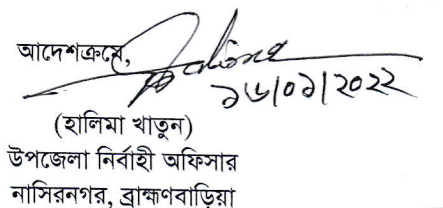 আদেশক্রমে,
১৬/০১/2022
(হালিমা খাতুন)
উপজেলা নির্বাহী অফিসার
নাসিরনগর, ব্রাহ্মণবাড়িয়া